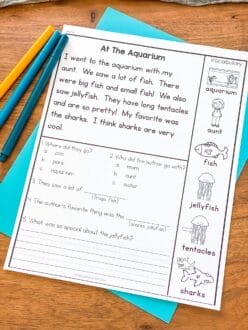 At The Aquarium
I went to the aquarium with my
aunt. We saw a lot of fish. There
were big fish and small fish! We also
saw jellyfish. They have long tentacles
and are so pretty! My favorite was
the sharks. I think sharks are very
cool.
1. Where did they go?
a. zoo
b. park
c. aquarium
2. Who did the author go with?
a. mom
b. aunt
c. sister
3. They saw a lot of
(frogs, fish)
4. The author's favorite thing was the
(sharks, jellyfish)
5. What was so special about the jellyfish?
Vocabulary
aquarium
aunt
fish
jellyfish
tentacles
sharks